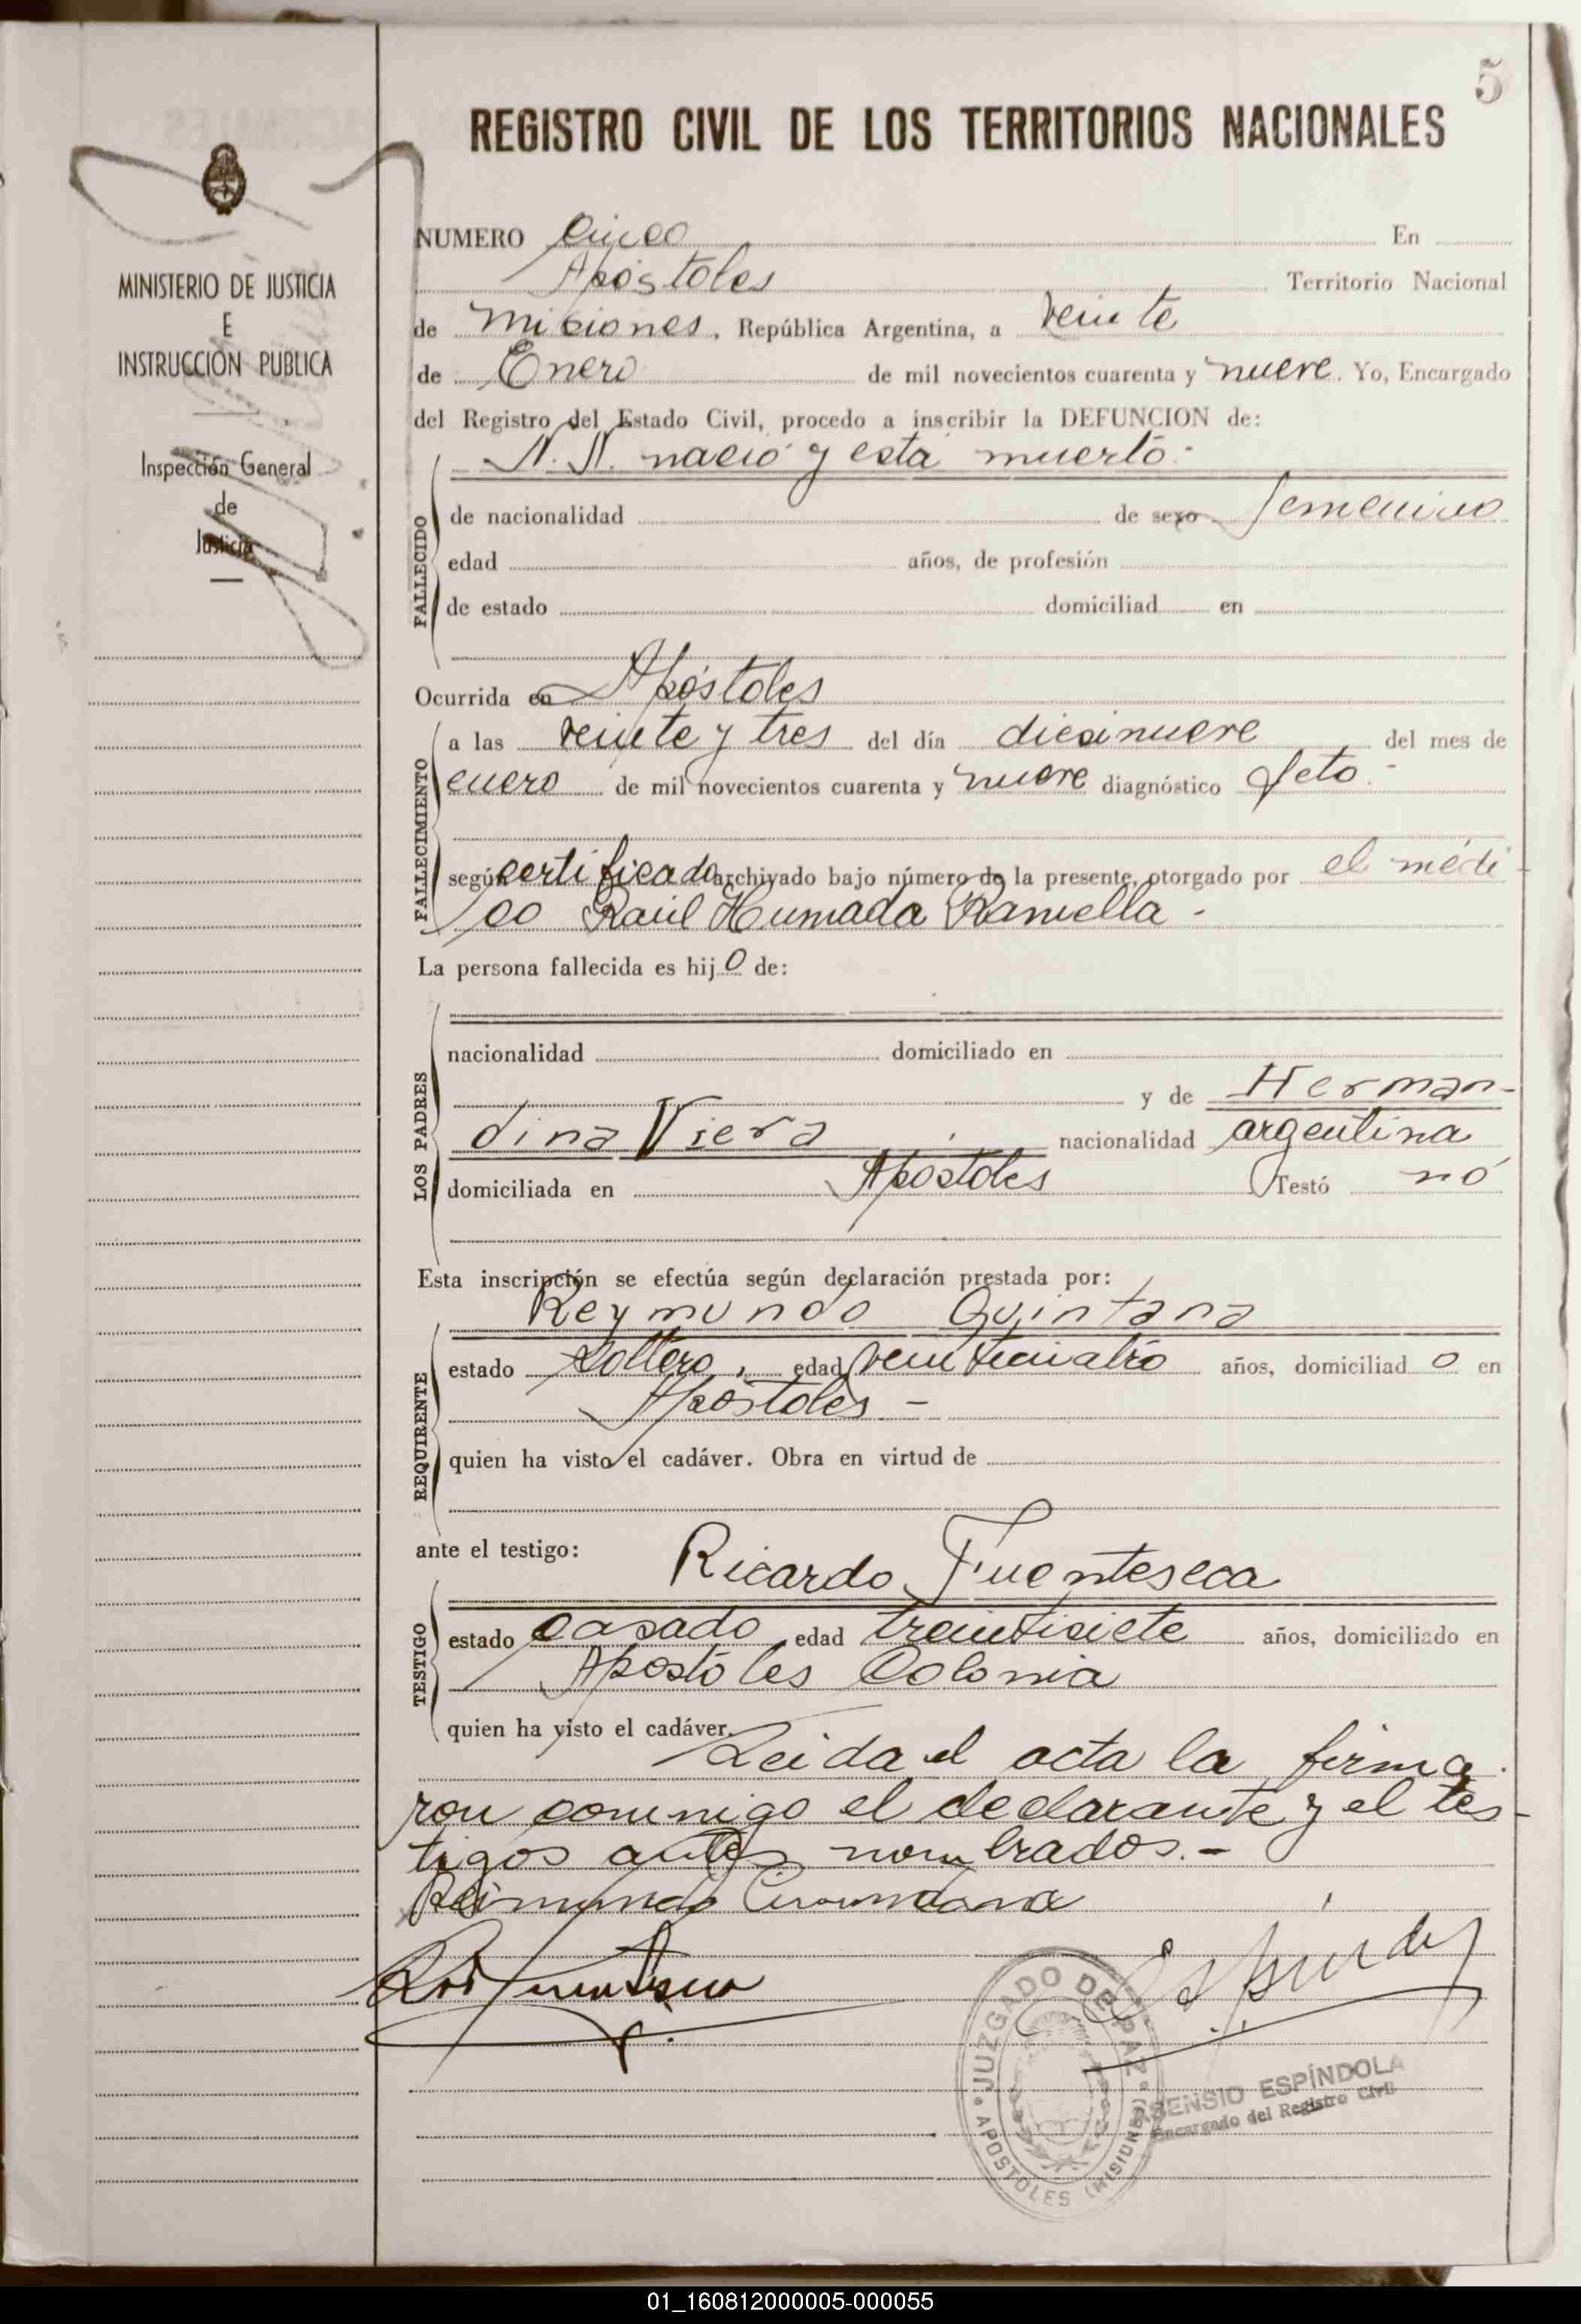 5
REGISTRO CIVIL DE LOS TERRITORIOS NACIONALES
MINISTERIO DE JUSTICIA
E
INSTRUCCIÓN PUBLICA
Inspección General
de
Justicia
NUMERO Cinco En
Apóstoles Territorio Nacional
de Misiones, República Argentina, a veinte
de Enero de mil novecientos cuarenta y nueve. Yo, Encargado
del Registro del Estado Civil, procedo a inscribir la DEFUNCION de:
N. N. nació y está muerto.-
FALLECIDO
de nacionalidad de sexo femenino
edad años, de profesión
de estado domiciliad en
Ocurrida en Apóstoles
FALLECIMIENTO
a las veinte y tres del día diecinueve del mes de
enero de mil novecientos cuarenta y nueve diagnóstico feto.-
según certificado archivado bajo número de la presente, otorgado por el médi
co Raúl Humada Ramella -
La persona fallecida es hij o de:
LOS PADRES
nacionalidad domiciliado en
y de Herman-
dina Viera nacionalidad argentina
domiciliada en Apóstoles Testó nó
Esta inscripción se efectúa según declaración prestada por:
Reymundo Quintana
REQUIRENTE
estado soltero, edad veinticuatro años, domiciliad o en
Apóstoles -
quien ha visto el cadáver. Obra en virtud de
ante el testigo: Ricardo Fuenteseca
TESTIGO
estado casado edad treintisiete años, domiciliado en
Apóstoles Colonia
quien ha visto el cadáver.
Leida el acta la firma
ron conmigo el declarante y el tes-
tigos antes nombrados.-
JUZGADO DE PAZ
APOSTOLES (MISIONES)
ASENSIO ESPÍNDOLA
Encargado del Registro Civil
01_160812000005-000055